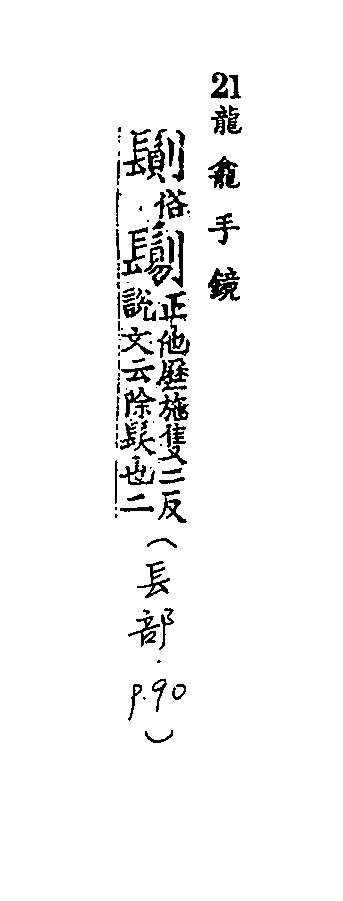 21龍龕手鏡
俗
正他歷施隻二反
說文云除髮也二
(長部.p.90)